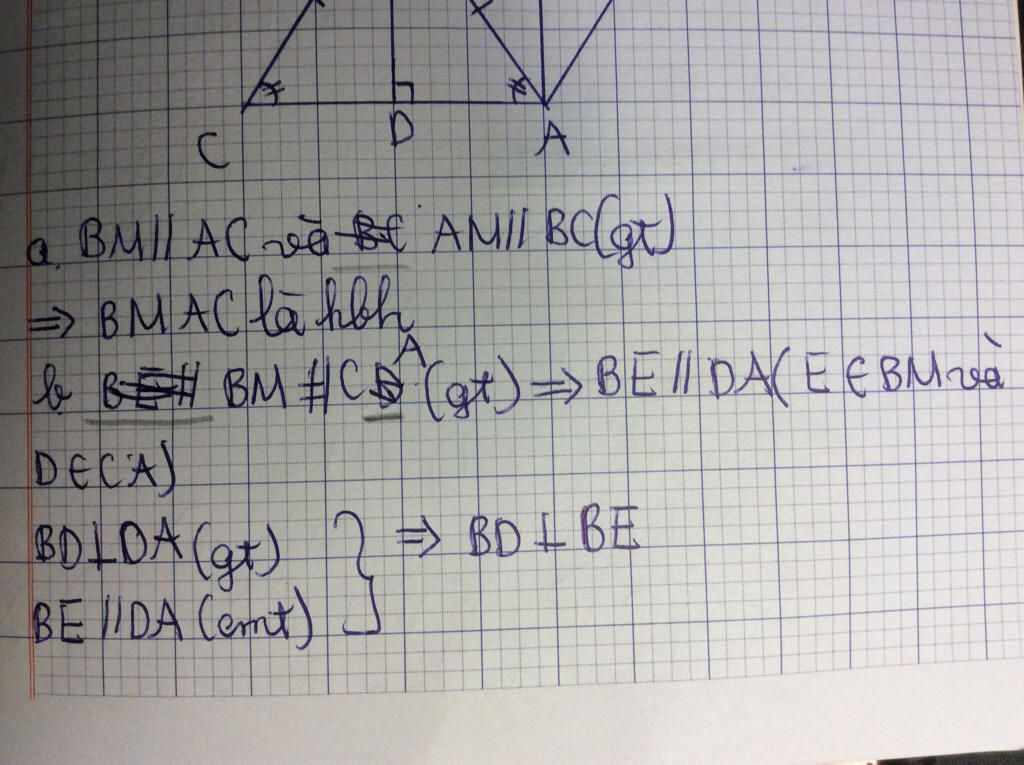 C D A
a. BM // AC và AM // BC (gt)
⇒ BMAC là hbh
b BM // CA (gt) ⇒ BE // DA ( E ∈ BM và
D ∈ CA)
BD ⊥ DA (gt)
⇒ BD ⊥ BE
BE // DA (cmt)